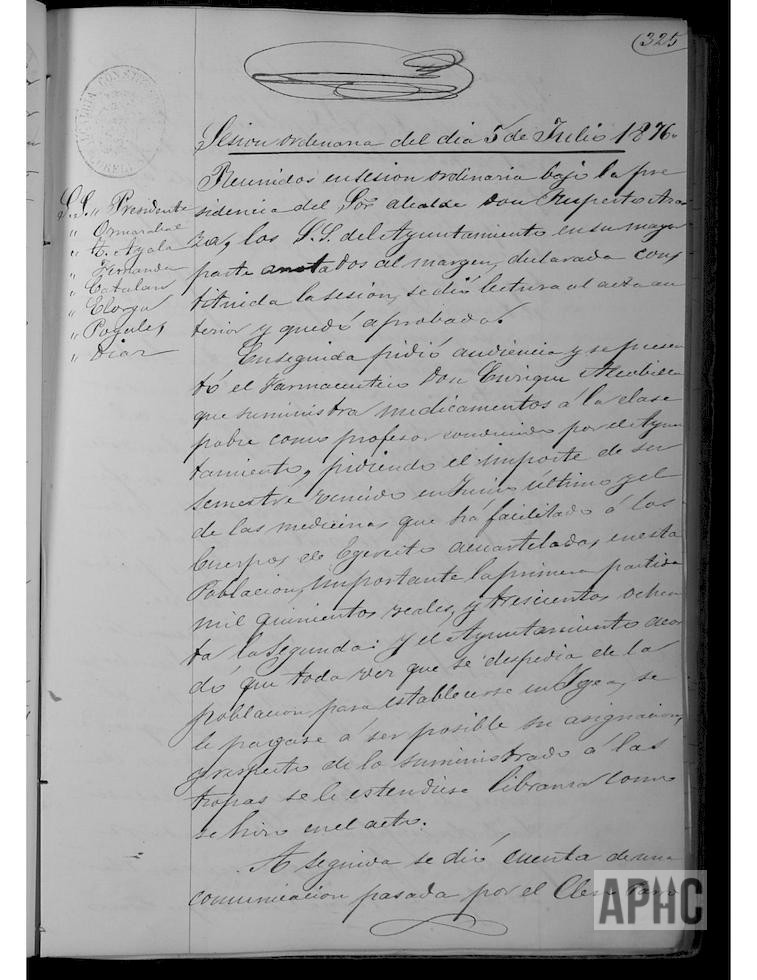 325
Sesion ordenaria del dia 5 de Julio 1876.
S.S. " Presidente
" Ormazabal
" Ayala
" Fernandez
" Catalan
" Elorza
" Pagules
" Diaz
Reunidos en sesion ordinaria bajo la pre
sidencia del Sor alcalde Don Ruperto Ara
za, los S.S. del Ayuntamiento en su mayor
parte anotados al margen, declarada cons
tituida la sesion, se dió lectura al acta an
terior y quedó aprobada.
Enseguida pidió audiencia y se presen
tó el Farmaceutico Don Enrique
que suministra medicamentos á la clase
pobre como profesor conducido por el Ayun
tamiento, pidiendo el importe de su
semestre vencido en Junio último y el
de las medicinas que há facilitado á los
Cuerpos de Egercito acuartelados en esta
Poblacion, importante la primera partida
mil quinientos reales, y trescientos ochen
ta la segunda: y el Ayuntamiento acor
dó que toda vez que se despedia de la
poblacion para establecerse en Igea, se
le pagase á ser posible su asignacion,
y respecto de lo suministrado á las
tropas se le estendiese libranza como
se hizo en el acto.
A seguida se dió cuenta de una
comunicacion pasada por el Clero Parro
APHC